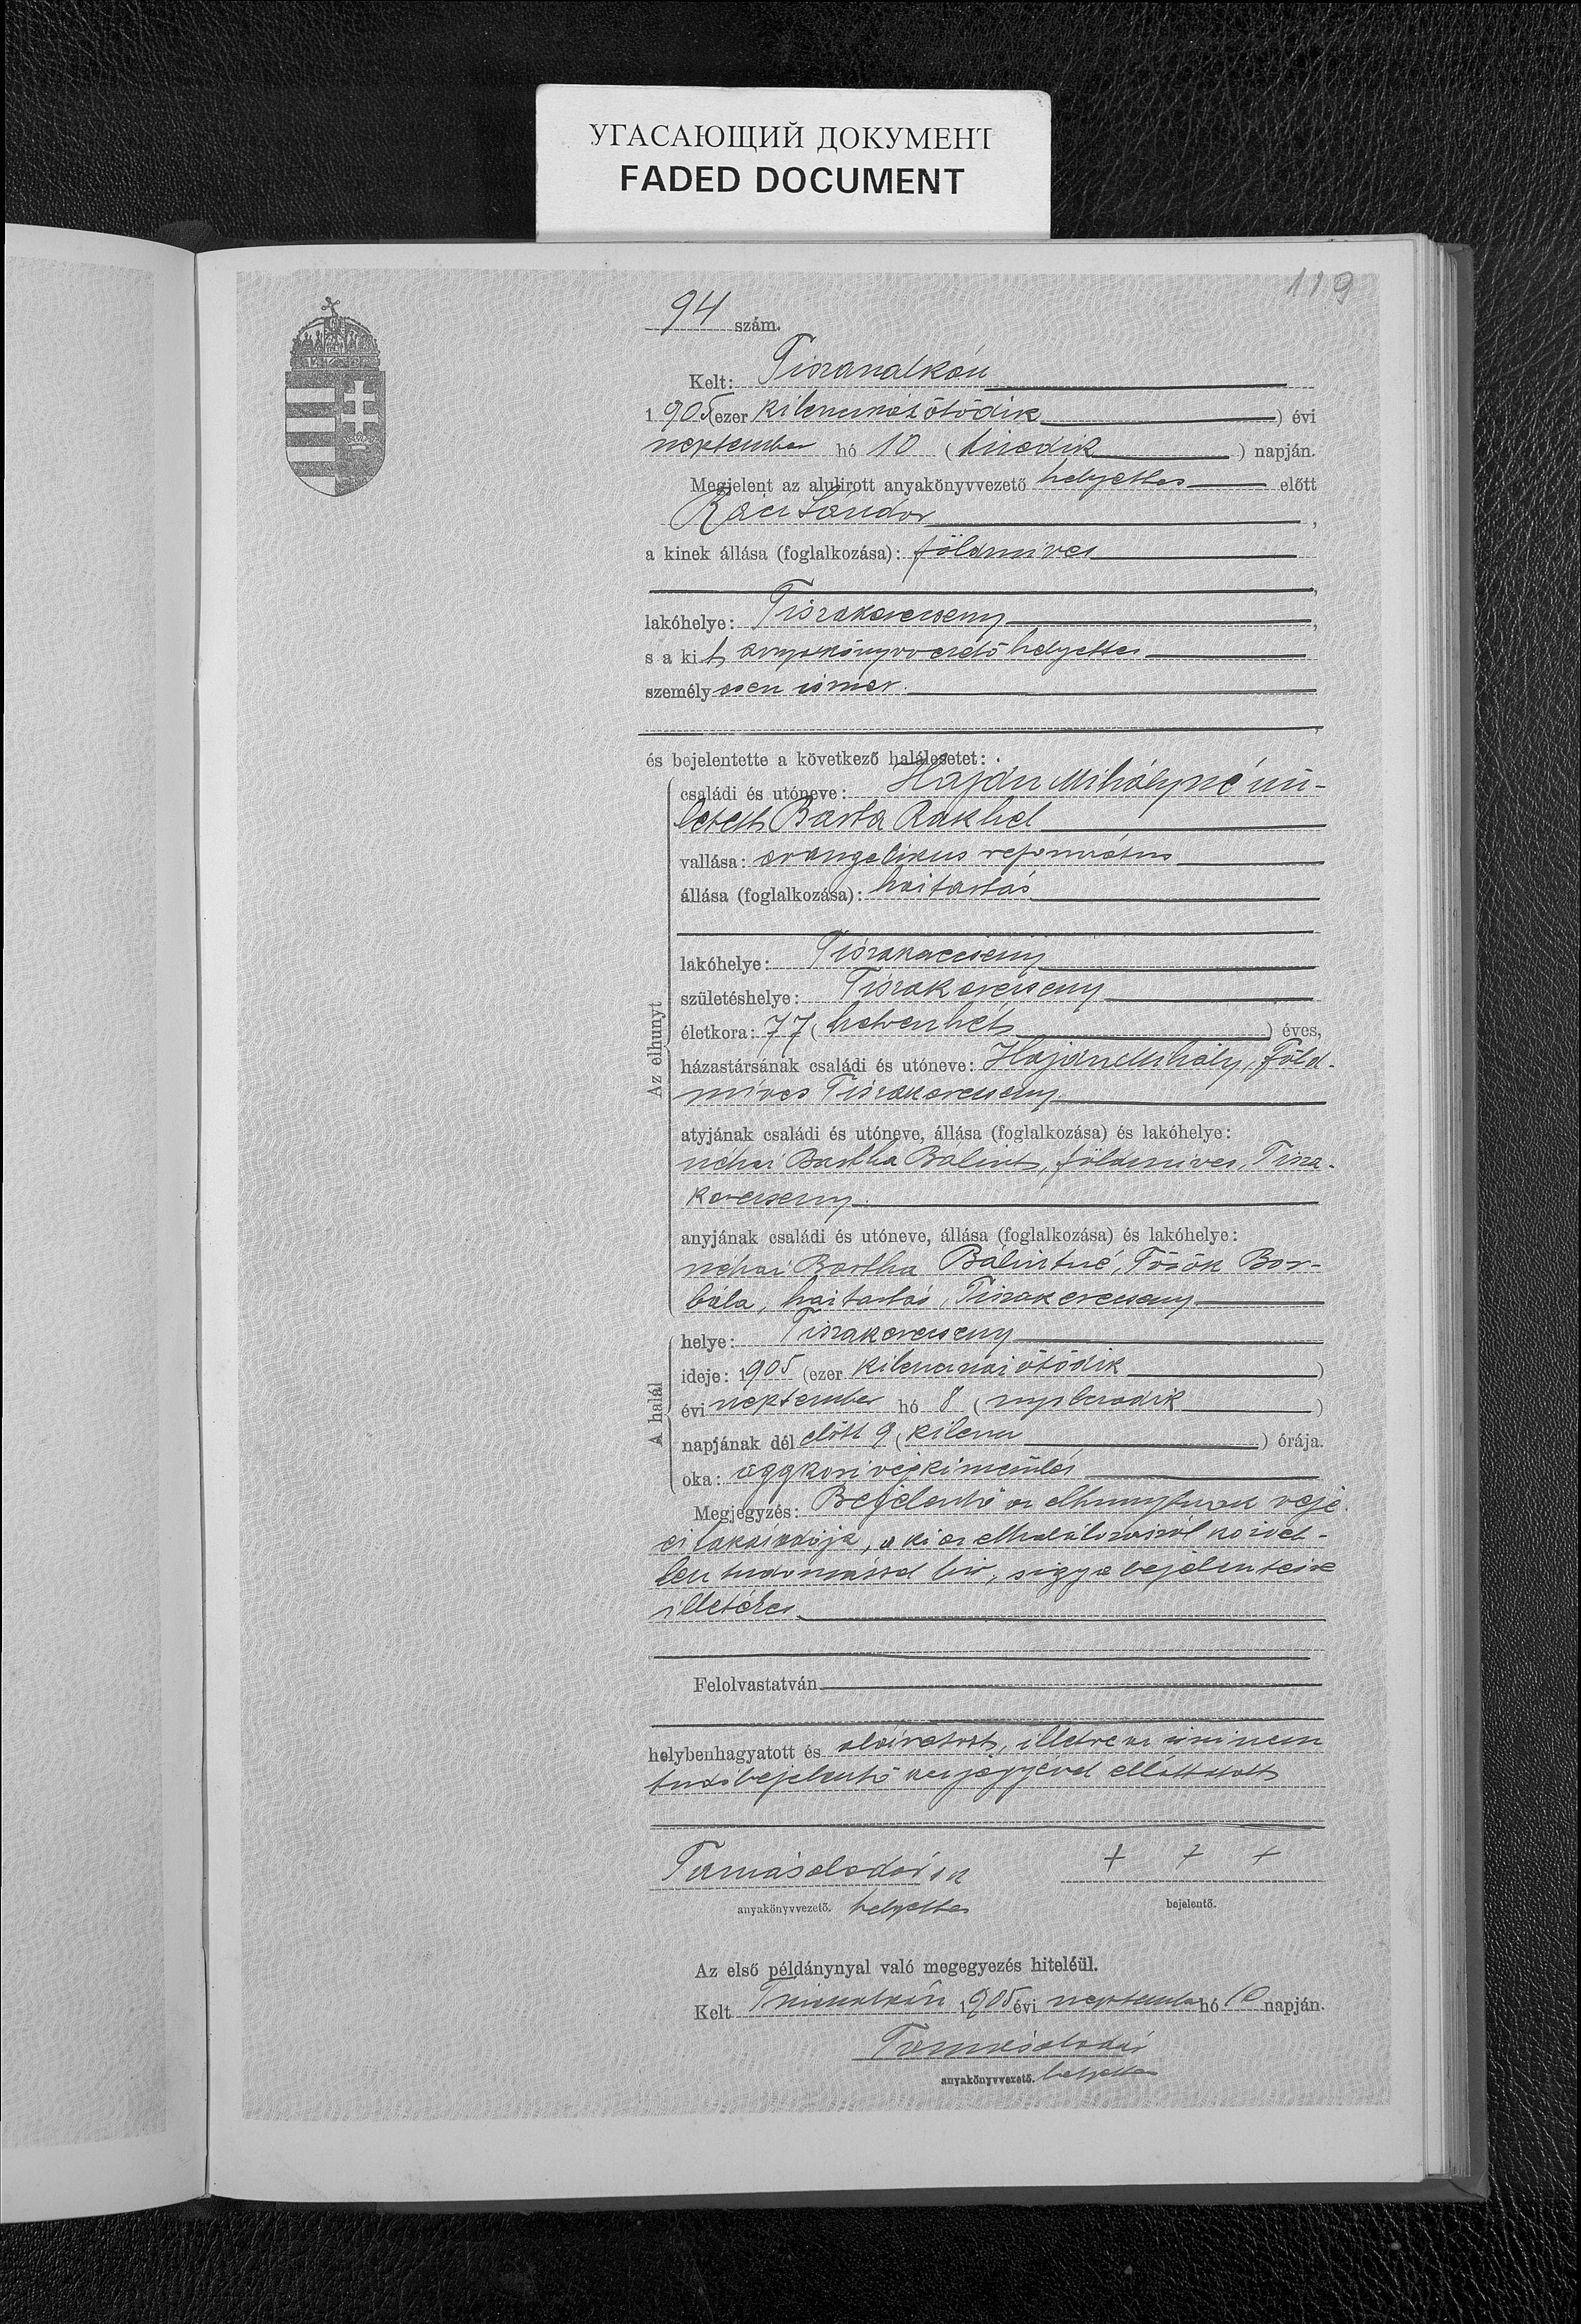 УГАСАЮЩИЙ ДОКУМЕНТ
FADED DOCUMENT
119
94 szám.
Kelt: Tiszaszalkán
1905 (ezer kilencszáz ötödik ) évi
szeptember hó 10 ( tizedik ) napján.
Megjelent az alulirott anyakönyvvezető helyettes előtt
Rácz Sándor ,
a kinek állása (foglalkozása): földmives
,
lakóhelye: Tiszakerecseny ,
s a kit anyakönyvvezető helyettes
személyesen ismer.
,
és bejelentette a következő halálesetet:
családi és utóneve: Hajdu Mihályné szü-
letett Barta Rakhel
vallása: evangelikus református
állása (foglalkozása): háztartás
lakóhelye: Tiszakerecseny
születéshelye: Tiszakerecseny
életkora: 77 ( hetvenhét ) éves,
házastársának családi és utóneve: Hajdu Mihály, föld-
míves Tiszakerecseny
Az elhunyt
atyjának családi és utóneve, állása (foglalkozása) és lakóhelye:
néhai Bartha Bálint, földmives, Tisza-
kerecseny
anyjának családi és utóneve, állása (foglalkozása) és lakóhelye:
néhai Bartha Bálintné, Török Bor-
bála, háztartás, Tiszakerecseny
helye: Tiszakerecseny
ideje: 1905 (ezer kilencszáz ötödik )
évi szeptember hó 8 ( nyolcadik )
A halál
napjának délelőtt 9 ( kilenc ) órája.
oka: aggkori végkimerülés
Megjegyzés: Bejelentő az elhunytnak veje
és lakásadója, a ki az elhalálozásról közvet-
len tudomással bir, s igy a bejelentésre
illetékes
Felolvastatván
helybenhagyatott és aláiratott, illetve az irni nem
tudó bejelentő kézjegyével elláttatott
+ + +
anyakönyvvezető. helyettes bejelentő.
Az első példánynyal való megegyezés hiteléül.
Kelt Tiszaszalkán 1905 évi szeptember hó 10 napján.
anyakönyvvezető. helyettes